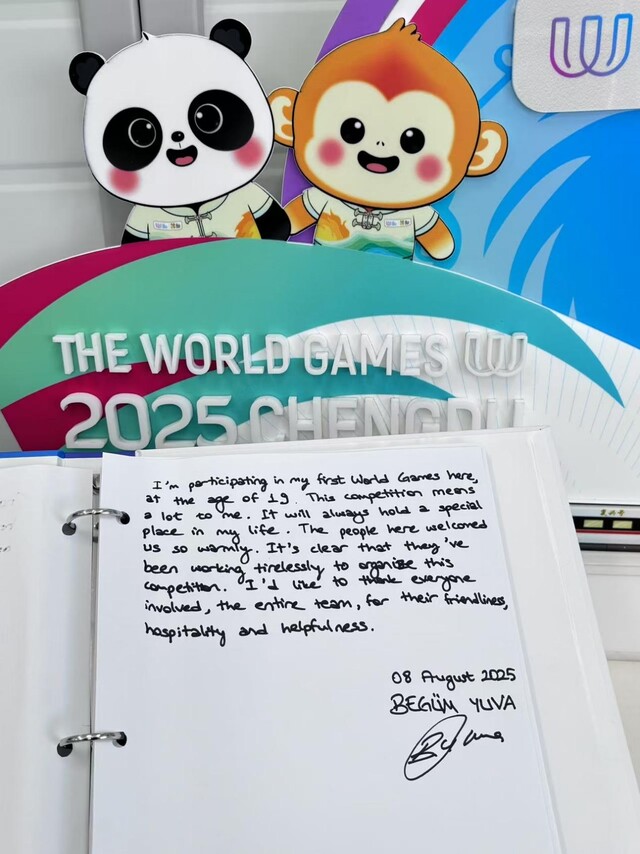 THE WORLD GAMES
2025 CHENGDU
I'm participating in my first World Games here,
at the age of 19. This competition means
a lot to me. It will always hold a special
place in my life. The people here welcomed
us so warmly. It's clear that they've
been working tirelessly to organize this
competition. I'd like to thank everyone
involved, the entire team, for their friendliness,
hospitality and helpfulness.
08 August 2025
BEGÜM YUVA